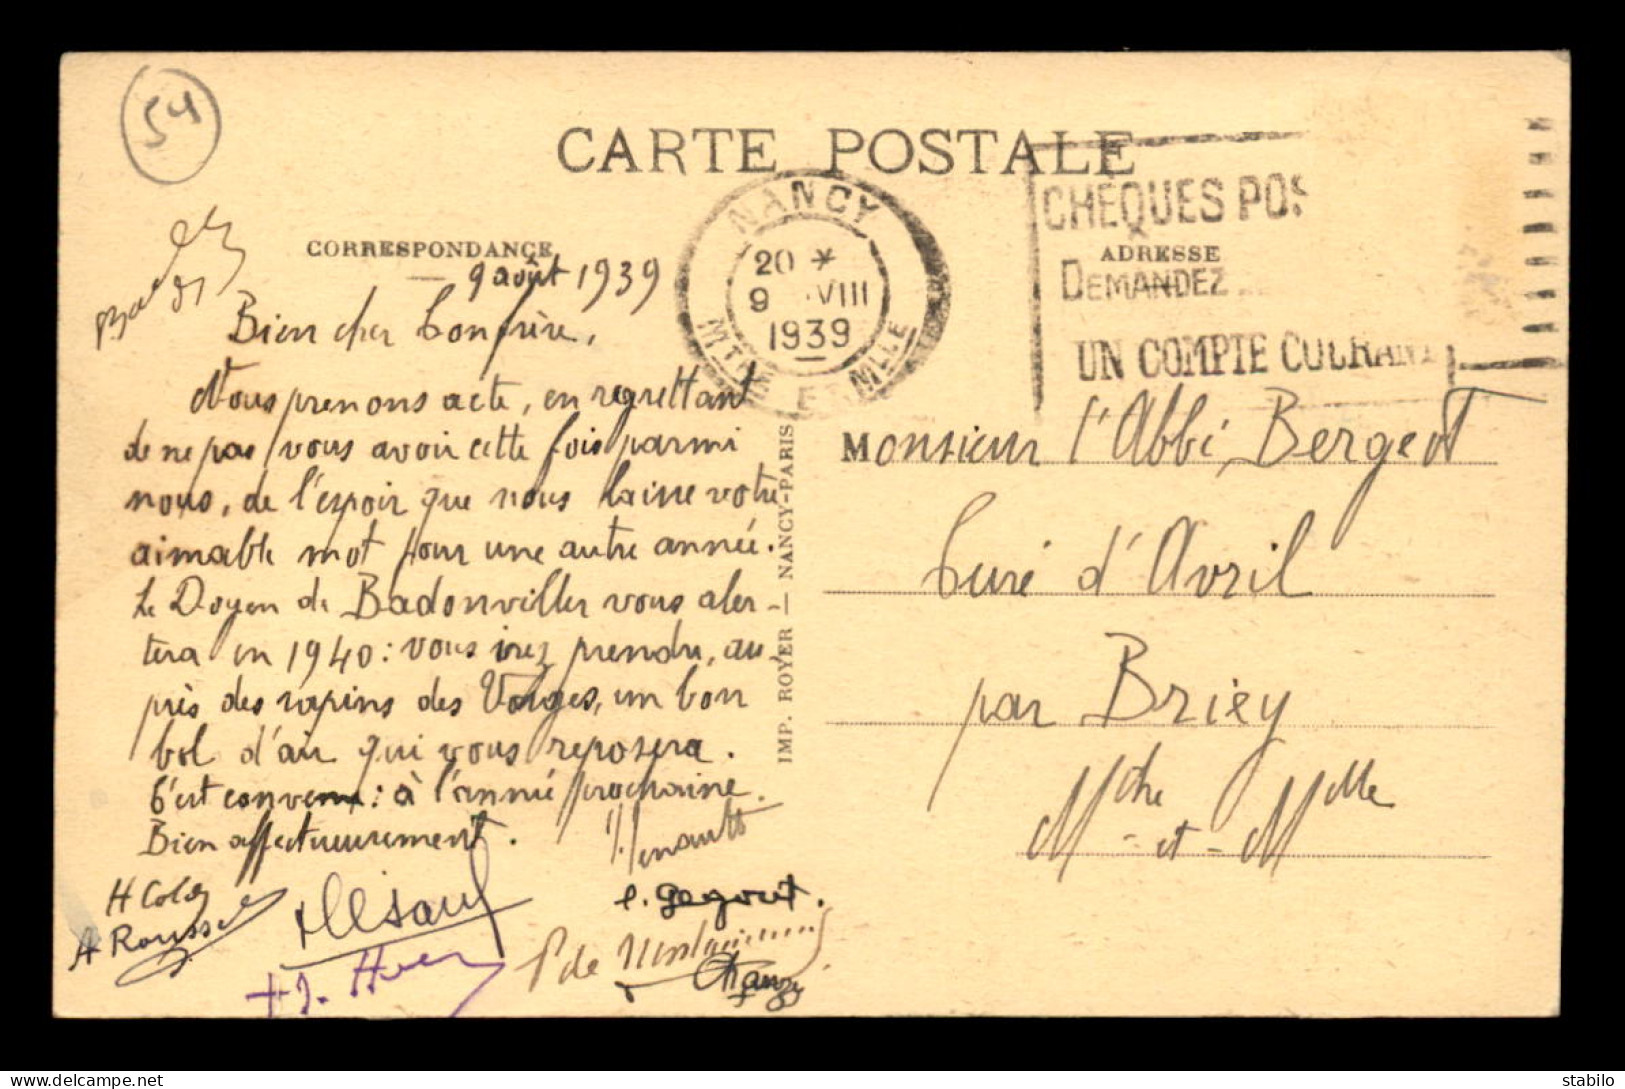 54
CARTE POSTALE
CORRESPONDANCE
9 août 1939
Bien cher Confrère,
Nous prenons acte, en regrettant
de ne pas vous avoir cette fois parmi
nous, de l'espoir que nous laisse votre
aimable mot pour une autre année.
Le Doyen de Badonviller vous aler-
tera en 1940 : vous irez prendre, au-
près des sapins des Vosges, un bon
bol d'air qui vous reposera.
C'est convenu : à l'année prochaine.
Bien affectueusement.
H Colin
A Rousse
P de
NANCY
20 *
9 VIII
1939
CHÈQUES POS
DEMANDEZ
UN COMPTE COURANT
ADRESSE
Monsieur l'Abbé Bergeot
Curé d'Avril
par Briey
Mthe et Mlle
IMP. ROYER — NANCY-PARIS
stabilo